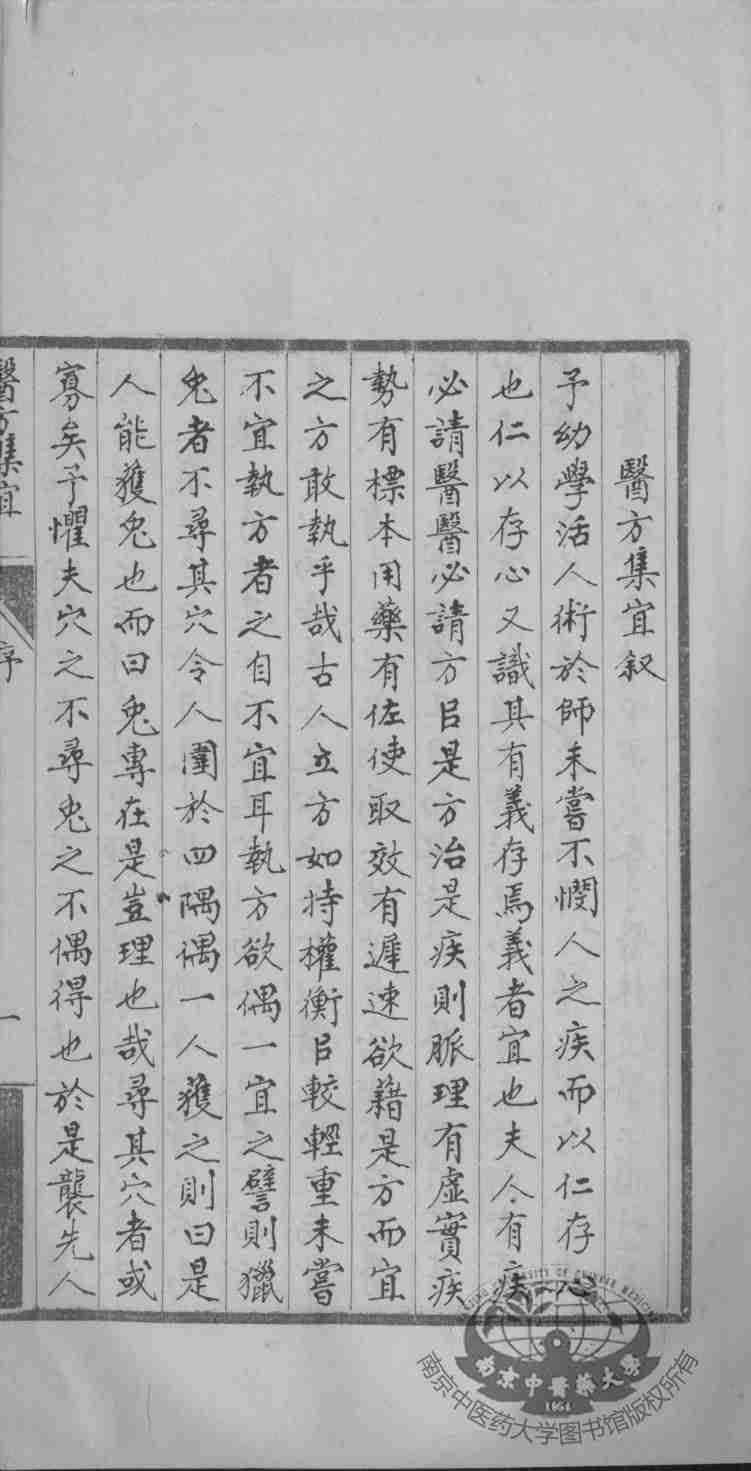 醫方集宜叙
予幼學活人術於師未嘗不憫人之疾而以仁存心
也仁以存心又識其有義存焉義者宜也夫人有疾
必請醫醫必請方㠯是方治是疾則脈理有虛實疾
勢有標本用藥有佐使取效有遲速欲藉是方而宜
之方敢執乎哉古人立方如持權衡㠯較輕重未嘗
不宜執方者之自不宜耳執方欲偶一宜之譬則獵
兔者不尋其穴令人圍於四隅偶一人獲之則曰是
人能獲兔也而曰兔專在是豈理也哉尋其穴者或
寡矣予懼夫穴之不尋兔之不偶得也於是襲先人
醫方集宜
序
一
南京中醫藥大學
1954
南京中医药大学图书馆版权所有